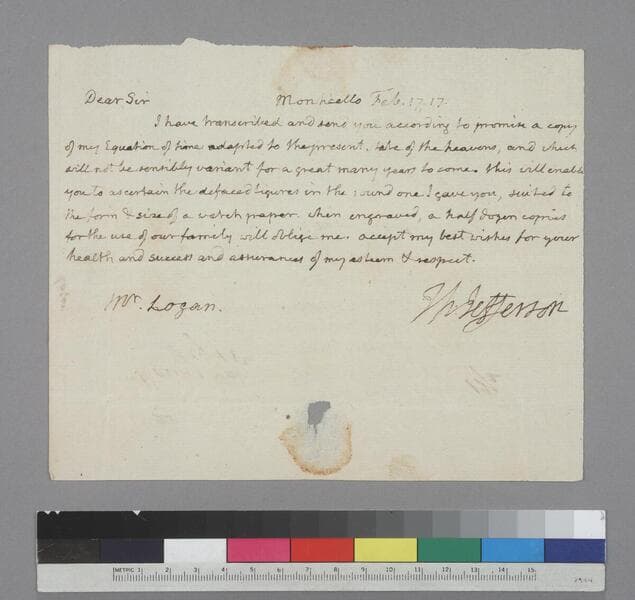 Dear Sir Monticello Feb. 17. 17.
I have transcribed and send you according to promise a copy
of my Equation of time adapted to the present state of the heavens, and which
will not be sensibly variant for a great many years to come. this will enable
you to ascertain the defaced figures in the round one I gave you, suited to
the form & size of a watch paper. when engraved, a half dozen copies
for the use of our family will oblige me. accept my best wishes for your
health and success and assurances of my esteem & respect.
Mr. Logan. Th Jefferson
METRIC 1 2 3 4 5 6 7 8 9 10 11 12 13 14 15